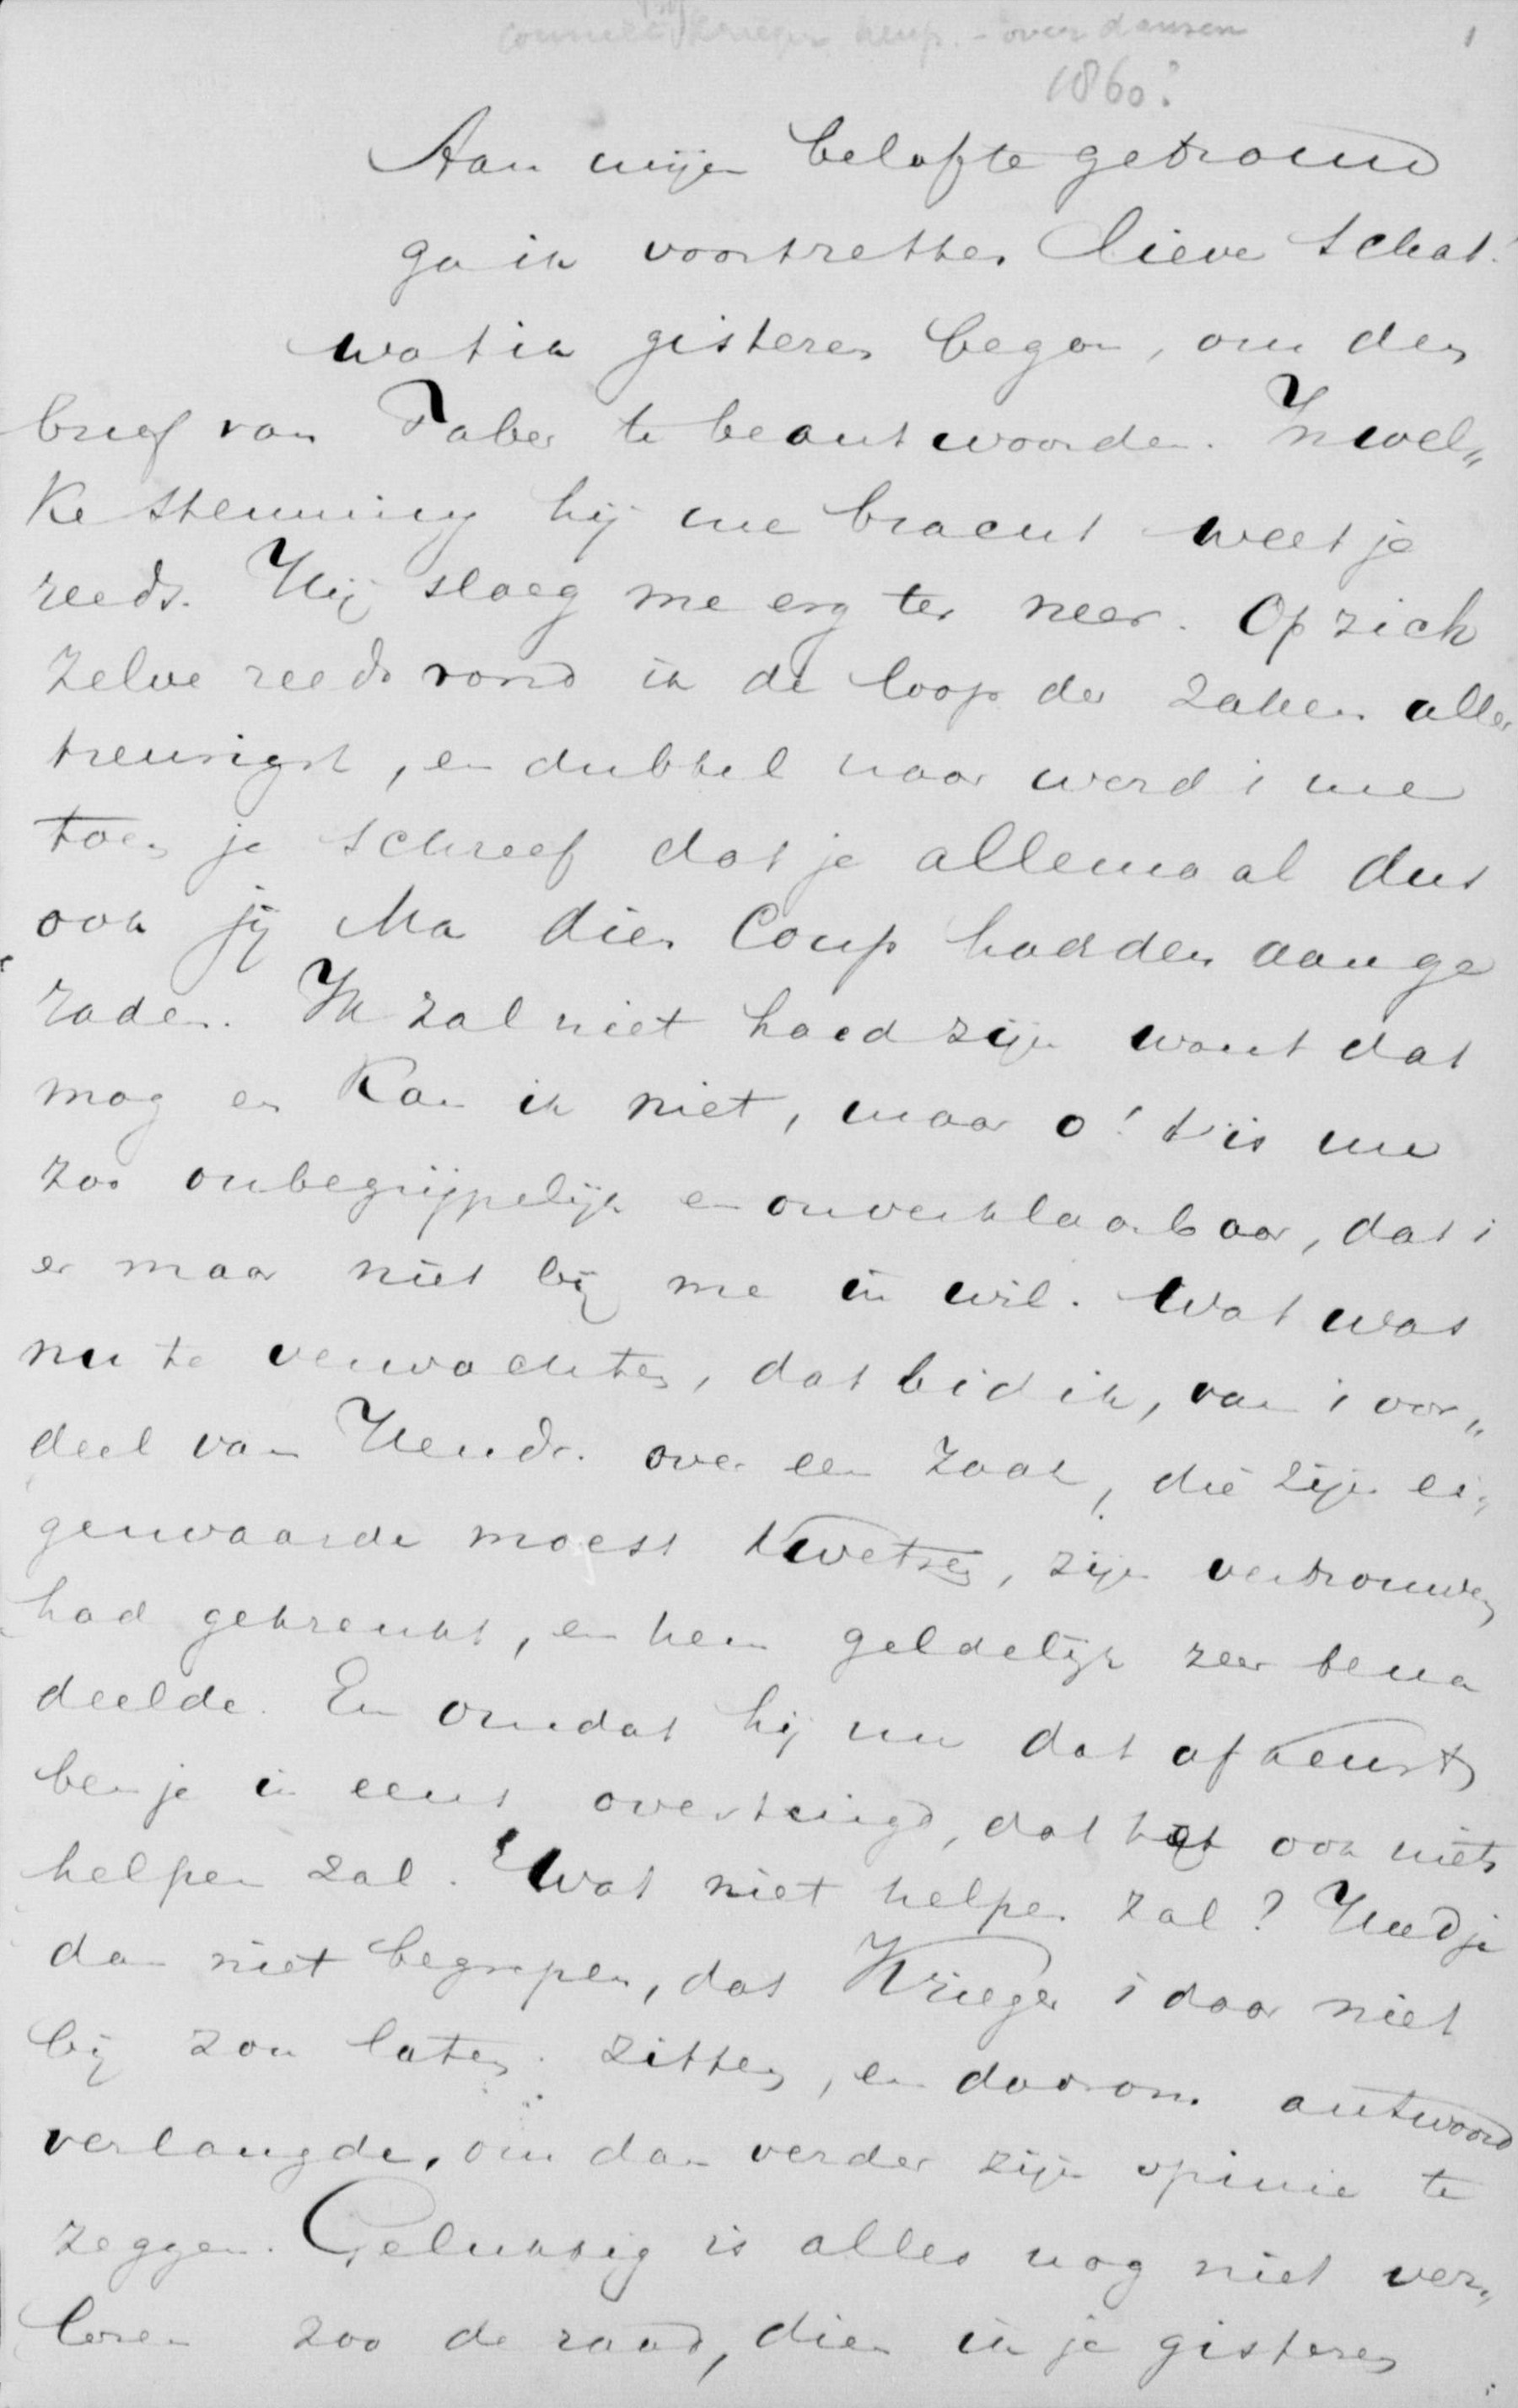 over dansen
1
1860?
Aan mijn belofte getrouw
ga ik voortzetten lieve Schat!
wat ik gisteren begon, om den
brief van Faber te beantwoorden. In wel„
ke stemming hij me bracht weet je
reeds. Hij sloeg me erg ter neer. Op zich
zelve reeds vond ik de loop der zaken aller
treurigst, en dubbel naar werd i me
toen je schreef dat je allemaal dus
ook jij Ma dien Coup hadden aange
raden. Ik zal niet hard zijn want dat
mag en kan ik niet, maar o! t is me
zoo onbegrijpelijk en onverklaarbaar, dat i
er maar niet bij me in wil. Wat was
nu te verwachten, dat bid ik, van i oor„
deel van Hendr. over een zaak, die zijn ei„
genwaarde moest kwetsen, zijn vertrouwen
had gekrenkt, en hem geldelijk zeer bena
deelde. En omdat hij nu dat afkeurt
ben je in eens overtuigd, dat het ook niets
helpen zal. Wat niet helpen zal? Hadt je
dan niet begrepen, dat Krieger i daar niet
bij zou laten zitten, en daarom antwoord
verlangde, om dan verder zijn opinie te
zeggen. Gelukkig is alles nog niet ver„
loren zoo de raad, dien ik je gisteren